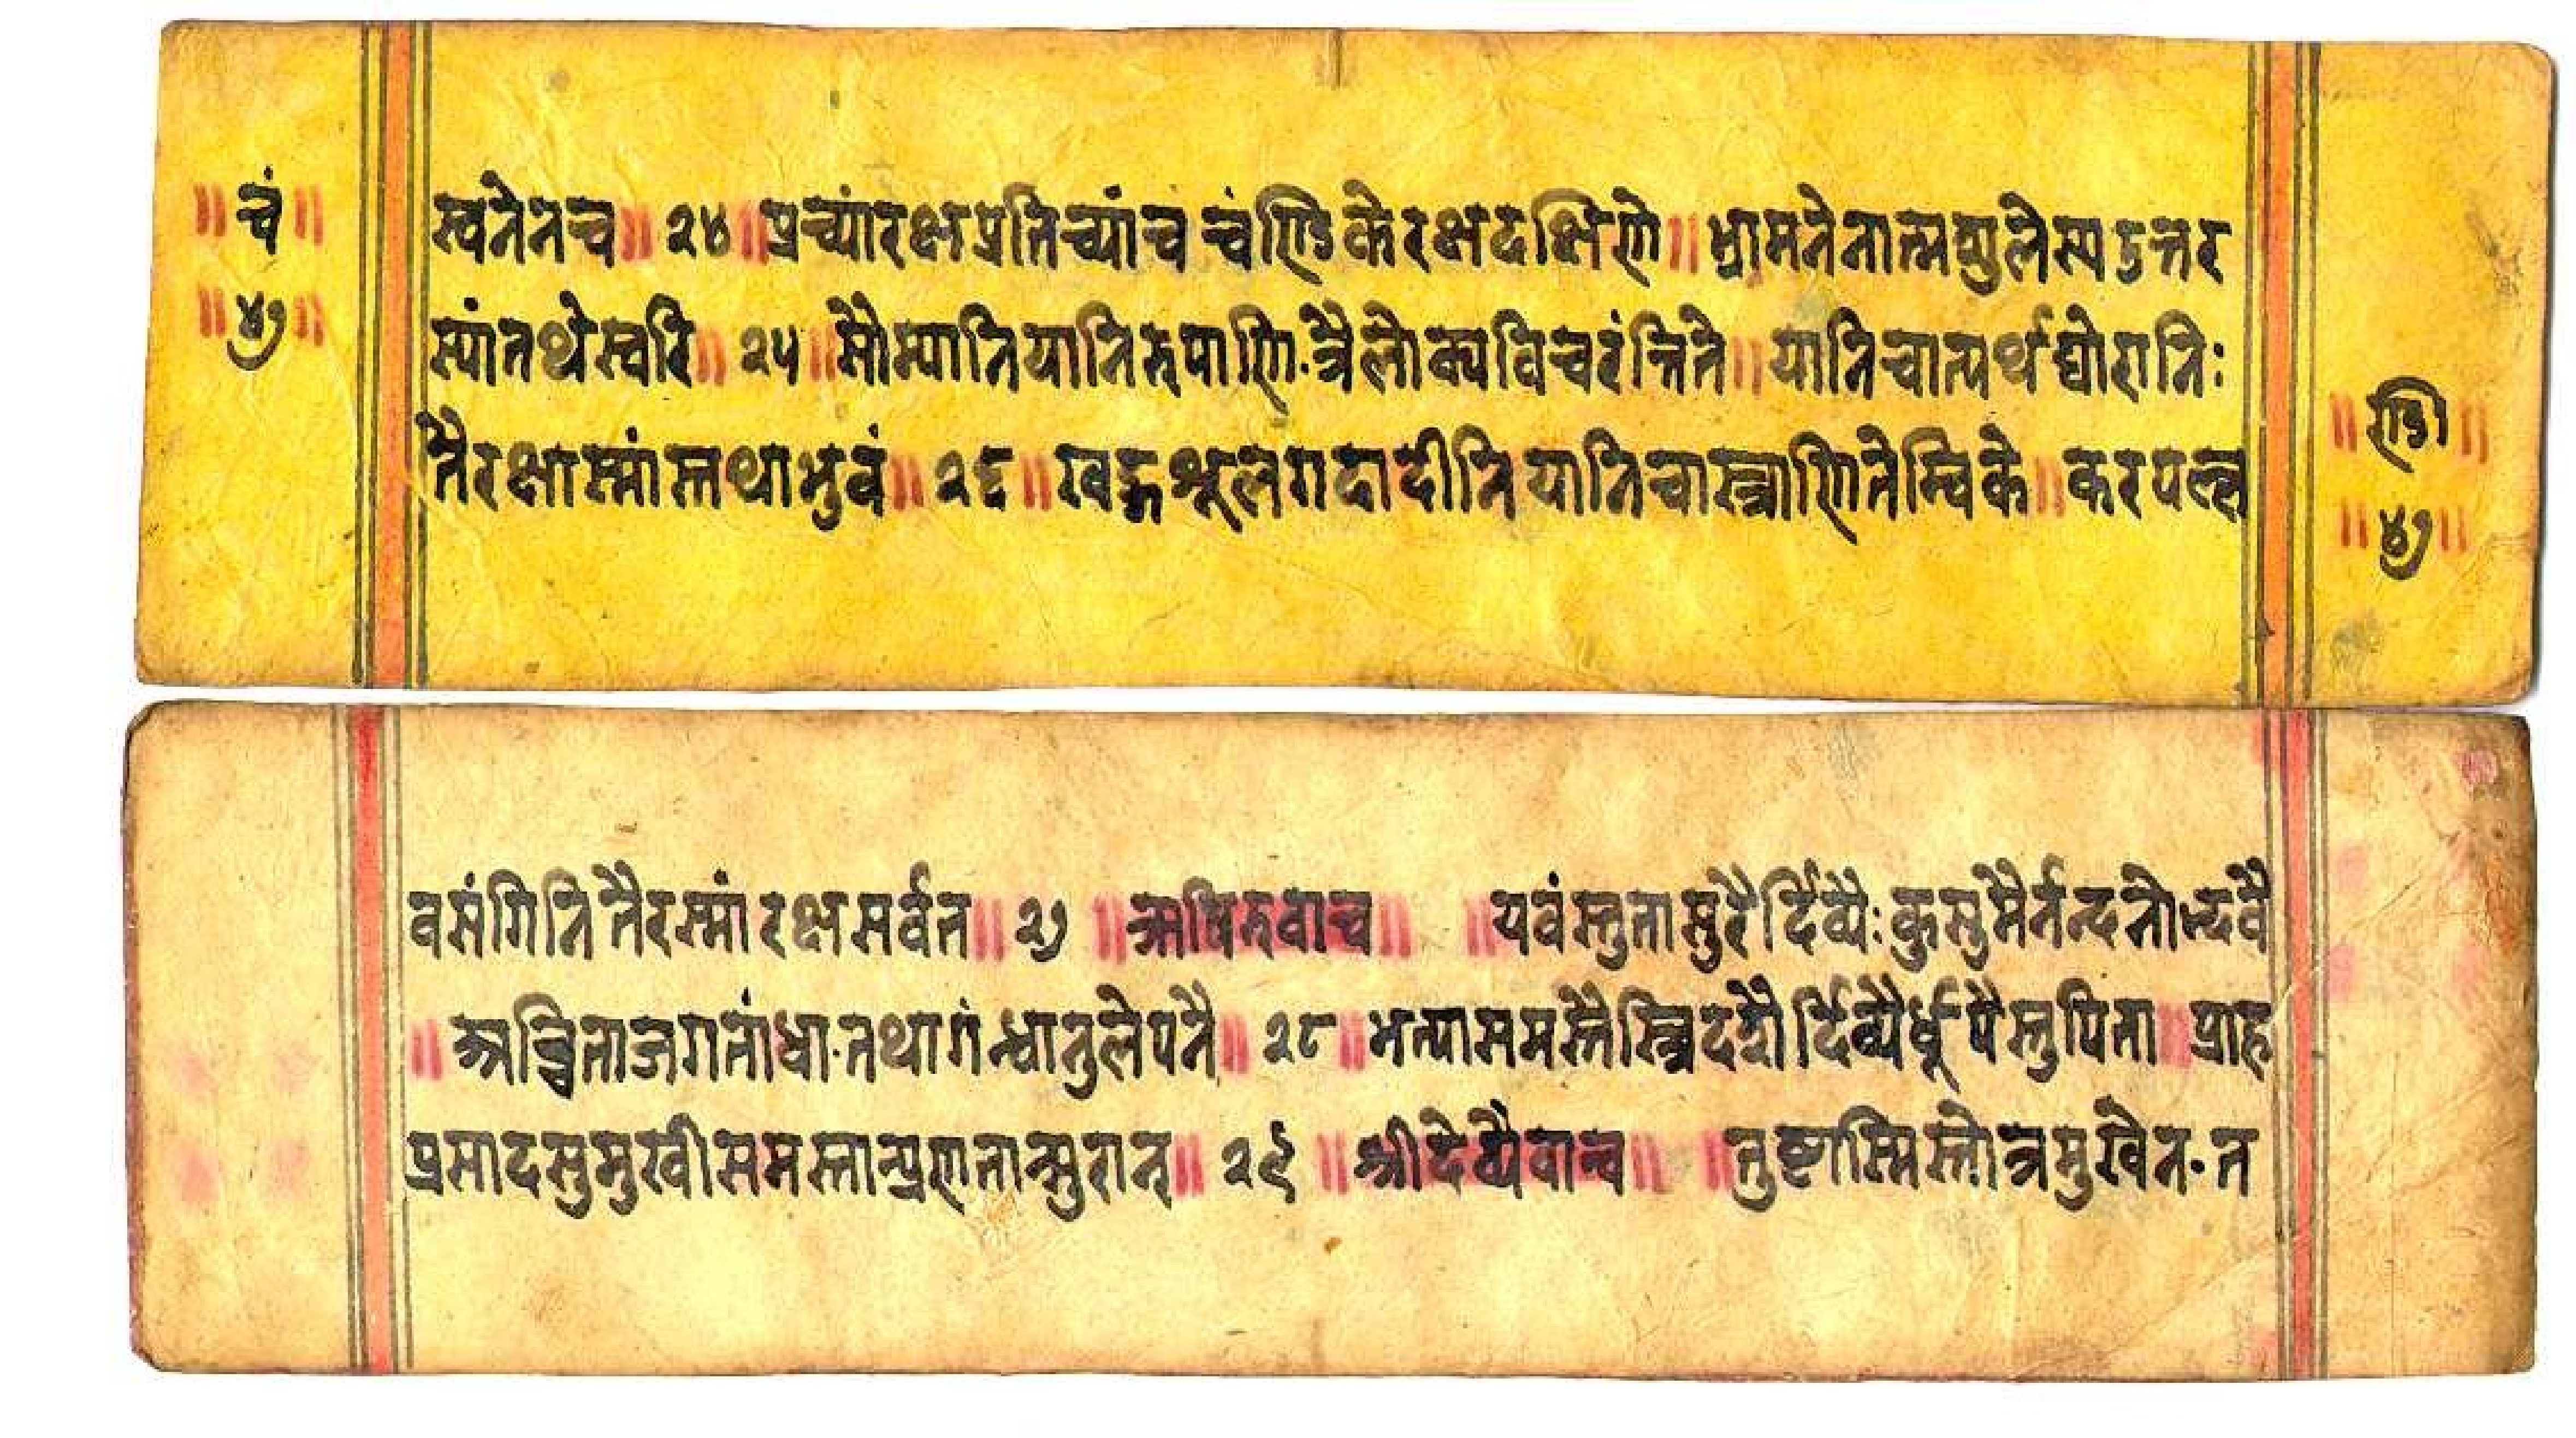 ॥ चं ॥
॥ ४७ ॥
स्वनेनच ॥ २४ ॥ प्रच्यांरक्षप्रतिच्यांच चंण्डिकेरक्षदक्षिणे ॥ भ्रामनेनात्मशुलेस्यउत्तर
स्यांतथेस्वरि ॥ २५ ॥ सौम्यानियानिरुपाणि·त्रैलोक्यविचरंन्तिते ॥ यानिचात्यर्थघोरानिः
तैरक्षास्मांस्तथाभुवं ॥ २६ ॥ खड्गशूलगदादीनियानिचास्त्राणितेम्विके ॥ करपल्ल
॥ ण्डि ॥
॥ ४७ ॥
वसंगिनितैरस्मांरक्षसर्वत ॥ २७ ॥ ऋषिरुवाच ॥ ॥ यवंस्तुतासुरैर्दिव्यैः कुसुमैर्नन्दनोन्दवै
॥ अर्च्चिताजगतांधा·तथागंन्धानुलेपनै ॥ २८ ॥ भत्त्यासमस्तैस्त्रिदशैर्दिव्यैर्धूपैस्तुपिता ॥ प्राह
प्रसादसुमुखीसमस्तान्प्रणतान्सुरान् ॥ २९ ॥ श्रीदेव्यैवाच ॥ ॥ तुष्टास्मिस्तोत्रमुखेन·त